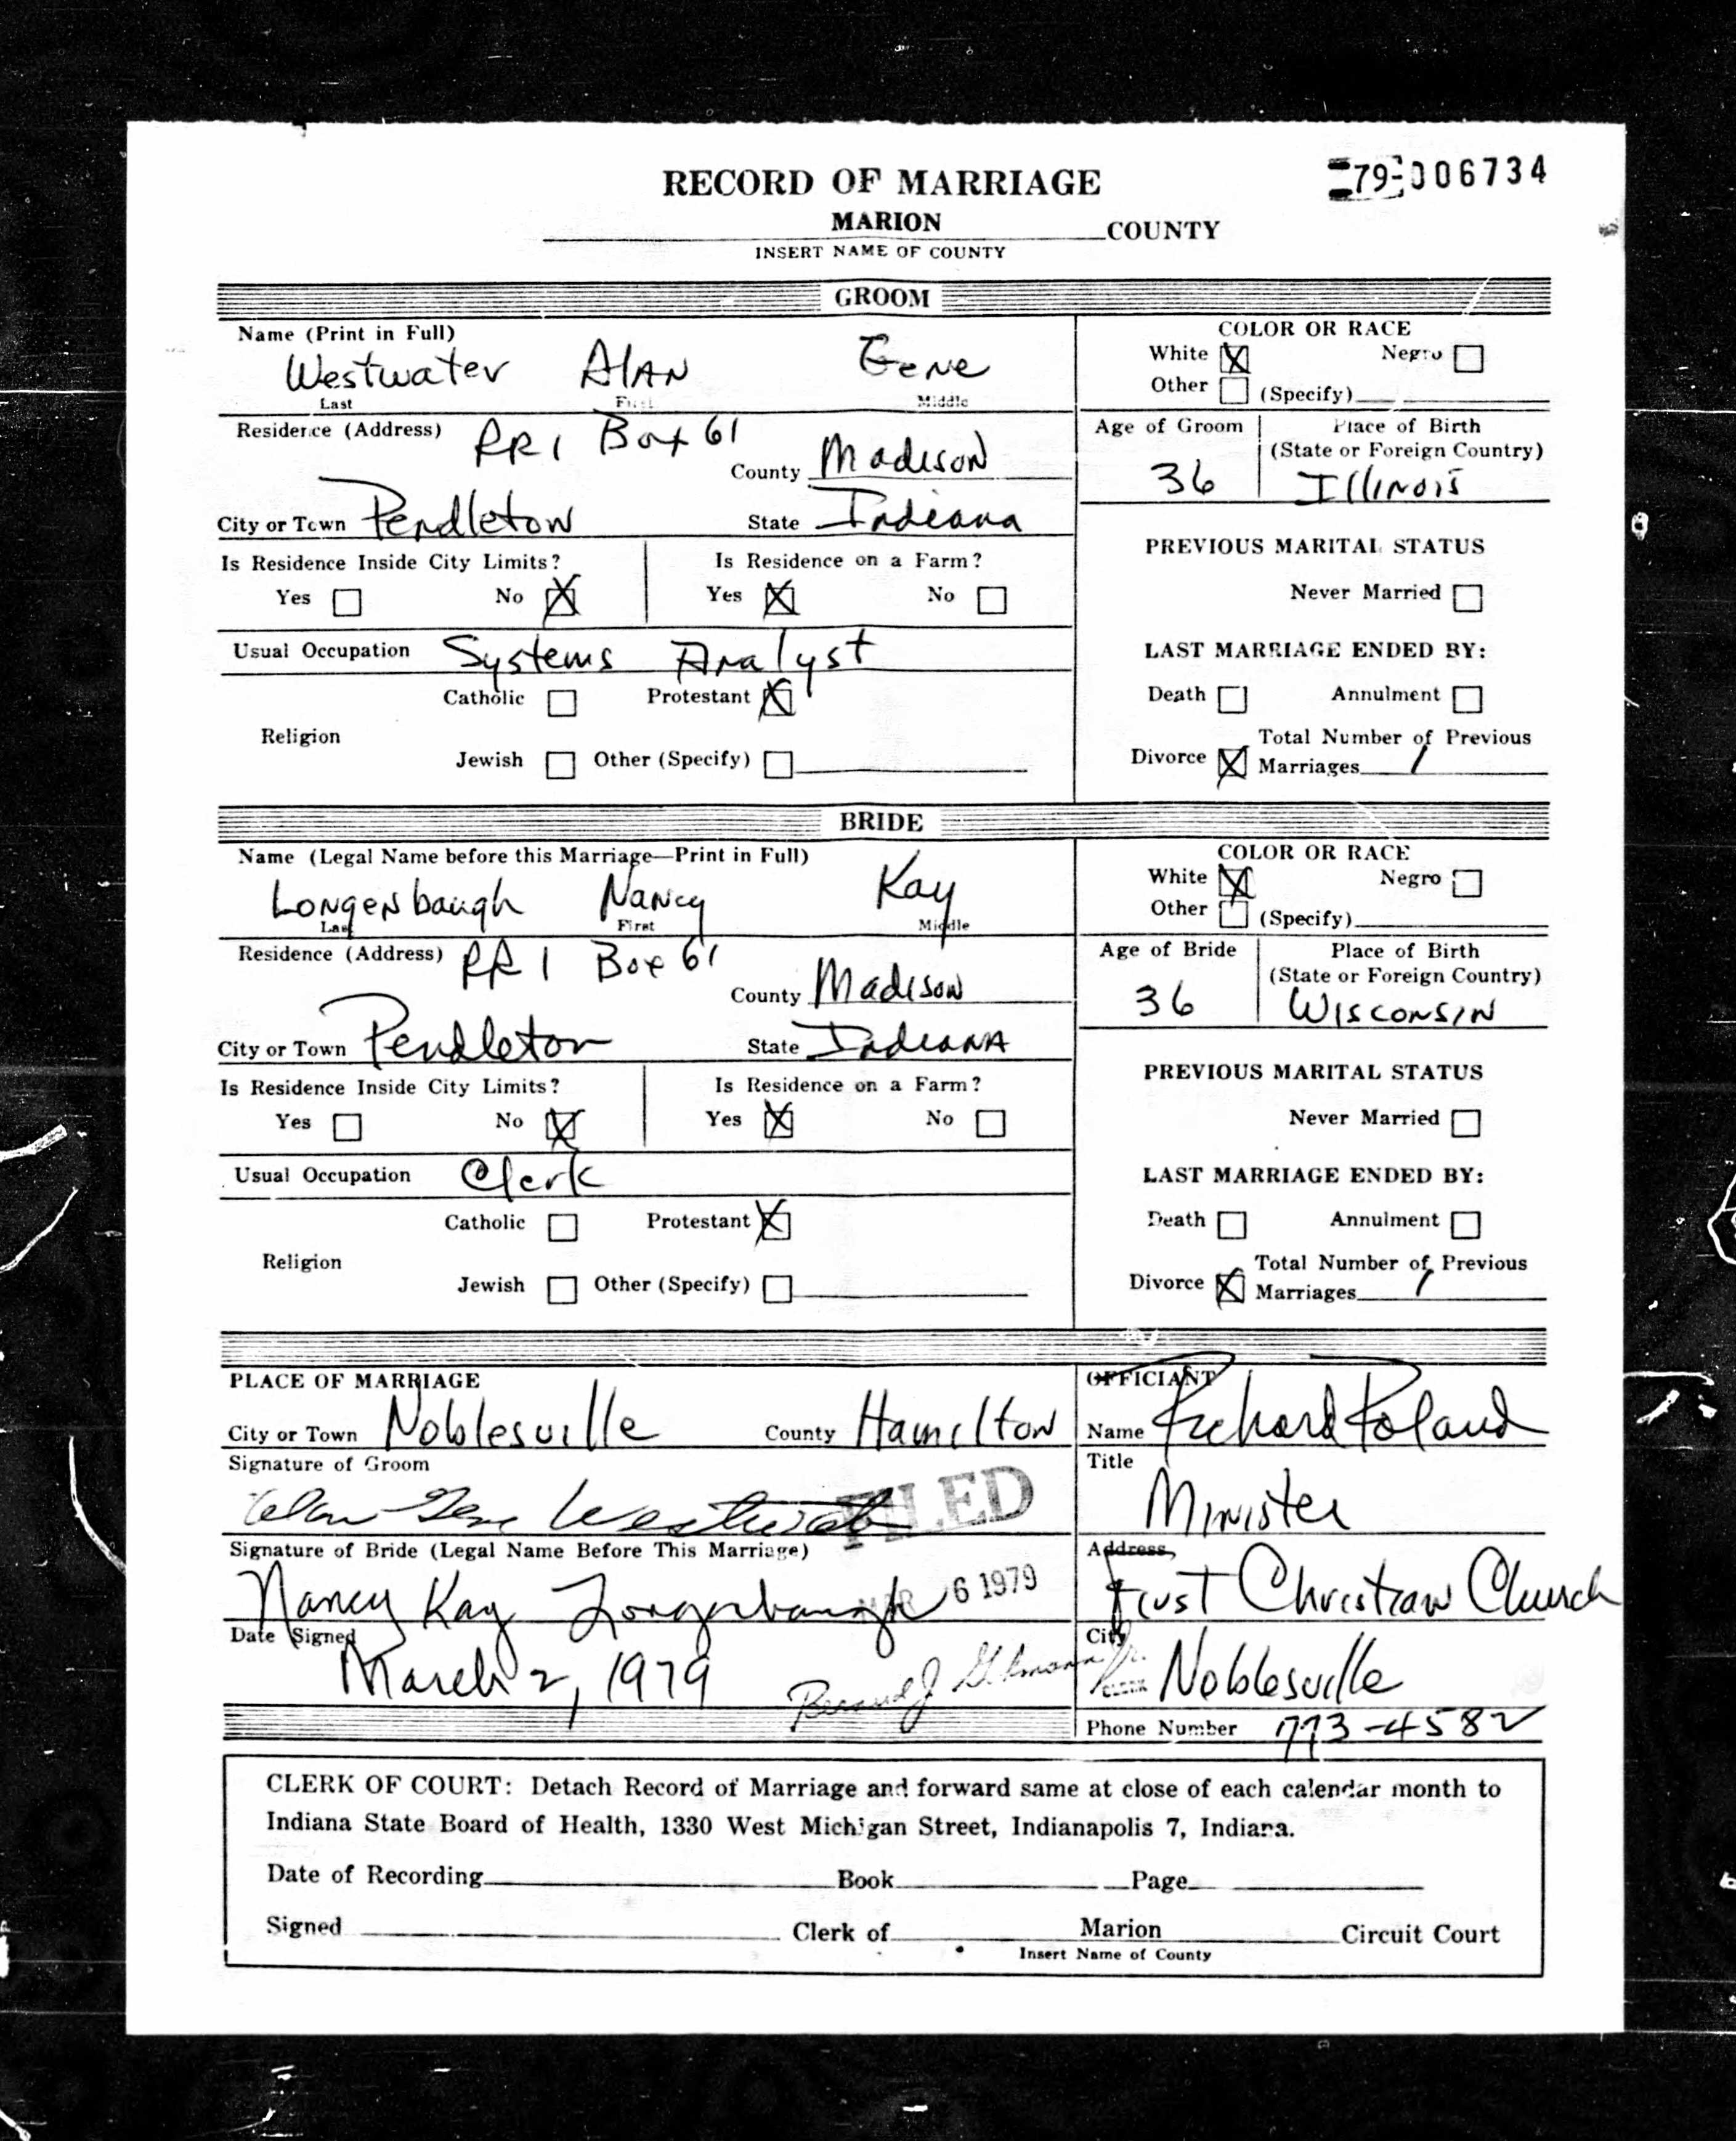 79-006734
RECORD OF MARRIAGE
MARION COUNTY
INSERT NAME OF COUNTY
GROOM
Name (Print in Full)
Westwater Alan Gene
Last First Middle
COLOR OR RACE
White [X] Negro [ ]
Other [ ] (Specify)
Residence (Address) RR 1 Box 61
County Madison
City or Town Pendleton State Indiana
Age of Groom 36
Place of Birth
(State or Foreign Country)
Illinois
Is Residence Inside City Limits?
Yes [ ] No [X]
Is Residence on a Farm?
Yes [X] No [ ]
PREVIOUS MARITAL STATUS
Never Married [ ]
Usual Occupation Systems Analyst
LAST MARRIAGE ENDED BY:
Death [ ] Annulment [ ]
Religion
Catholic [ ] Protestant [X]
Jewish [ ] Other (Specify) [ ]
Divorce [X] Total Number of Previous
Marriages 1
BRIDE
Name (Legal Name before this Marriage—Print in Full)
Longenbaugh Nancy Kay
Last First Middle
COLOR OR RACE
White [X] Negro [ ]
Other [ ] (Specify)
Residence (Address) RR 1 Box 61
County Madison
City or Town Pendleton State Indiana
Age of Bride 36
Place of Birth
(State or Foreign Country)
Wisconsin
Is Residence Inside City Limits?
Yes [ ] No [X]
Is Residence on a Farm?
Yes [X] No [ ]
PREVIOUS MARITAL STATUS
Never Married [ ]
Usual Occupation Clerk
LAST MARRIAGE ENDED BY:
Death [ ] Annulment [ ]
Religion
Catholic [ ] Protestant [X]
Jewish [ ] Other (Specify) [ ]
Divorce [X] Total Number of Previous
Marriages 1
PLACE OF MARRIAGE
City or Town Noblesville County Hamilton
Signature of Groom
Alan Gene Westwater
FILED
Signature of Bride (Legal Name Before This Marriage)
Nancy Kay Longenbaugh
MAR 6 1979
Date Signed
March 2, 1979
CLERK
OFFICIANT
Name Richard Roland
Title
Minister
Address
First Christian Church
City
Noblesville
Phone Number 773-4582
CLERK OF COURT: Detach Record of Marriage and forward same at close of each calendar month to
Indiana State Board of Health, 1330 West Michigan Street, Indianapolis 7, Indiana.
Date of Recording Book Page
Signed Clerk of Marion Circuit Court
Insert Name of County